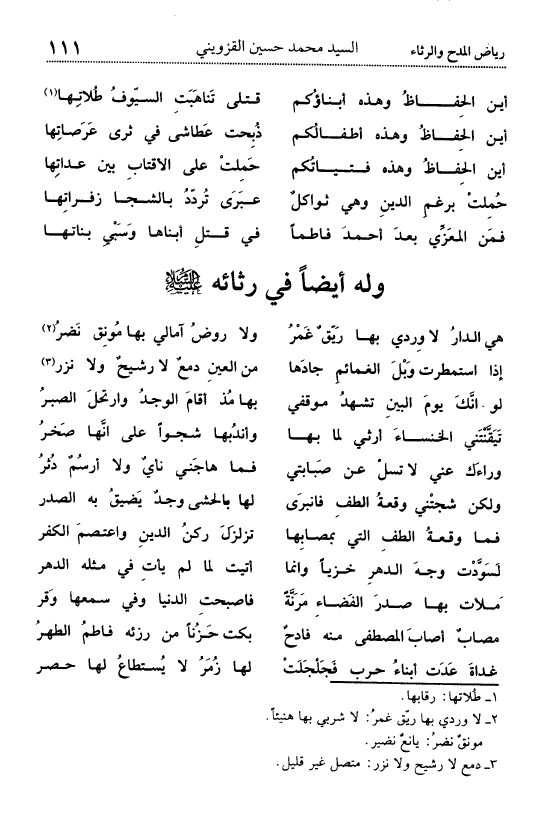 رياض المدح والرثاء السيد محمد حسين القزويني ١١١
أين الحفاظُ وهذه أبناؤكم قتلى تَناهَبَتِ السيّوفُ طُلاتِها(١)
أين الحفاظُ وهذه أطفالُكم ذُبِحت عَطاشى في ثرى عَرَصاتِها
أين الحفاظُ وهذه فتياتُكم حَملتْ على الأقتابِ بين عداتِها
حُملت برغمِ الدينِ وهي ثواكلٌ عبرَى تُردّدُ بالشجا زفراتِها
فمَن المعَزّي بعدَ أحمدَ فاطماً في قتلِ أبناها وَسَبْيِ بناتها
وله أيضاً في رثائه
هي الدارُ لا وردي بها ريّقٌ غَمْرُ ولا روضُ آمالي بها مُونق نَضرُ(٢)
إذا استمطرت وَبْلَ الغمائمِ جادَها من العينِ دمعٌ لا رشيحٌ ولا نزر(٣)
لو انَّكَ يومَ البينِ تشهدُ موقفي بها مُذ أقامَ الوجدُ وارتحلَ الصبرُ
تَيَقَّنْتَني الخنساءَ أرثي لما بها وأندُبها شجواً على انَّها صَخرُ
وراءَك عني لا تسلْ عن صَبابتي فما هاجَني نأيٌ ولا أرسُمٌ دُثرُ
ولكن شجتْني وقعةُ الطفِ فانبرَى لها بالحشى وجدٌ يَضيقُ به الصدر
فما وقعةُ الطفِ التي بمصابِها تزلزلَ ركنُ الدينِ واعتصمَ الكفر
لسَوَّدْت وجهَ الدهرِ خزياً وانما أتيت لما لم يأتِ في مثله الدهر
مَلات بها صدرَ الفَضاءِ مَرَنّةً فاصبحتِ الدنيا وفي سمعها وَقر
مصابٌ أصابَ المصطفى منه فادحٌ بكت حَزَناً من رزئه فاطمُ الطهرُ
غداةَ عَدَت أبناءُ حرب فَجَلْجَلَتْ لها زُمَرٌ لا يُستطاعُ لها حصر
١ـ طُلاتها: رقابها.
٢ـ لا وردي بها ريّق غمرُ: لا شربي بها هنيئاً.
مونقٌ نضرُ: يانعٌ نضير.
٣ـ دمع لا رشيح ولا نزر: متصل غير قليل.